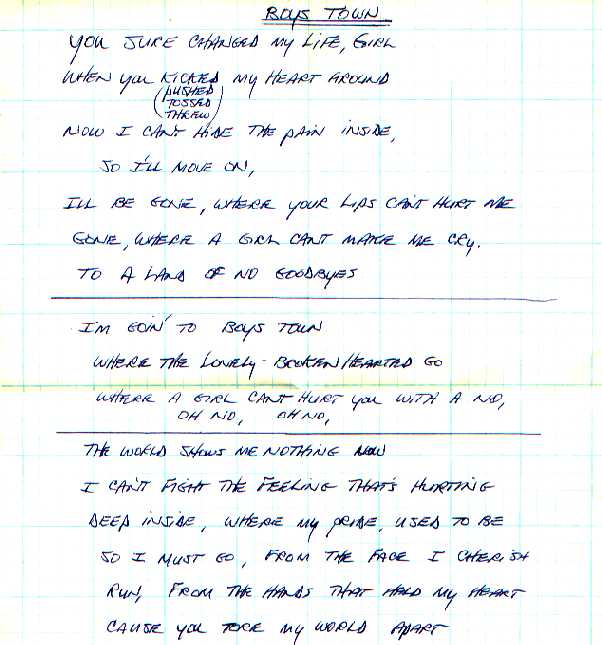 BOYS TOWN
YOU SURE CHANGED MY LIFE, GIRL
WHEN YOU KICKED MY HEART AROUND
(PUSHED
TOSSED
THREW)
NOW I CAN'T HIDE THE PAIN INSIDE,
SO I'LL MOVE ON,
I'LL BE GONE, WHERE YOUR LIPS CAN'T HURT ME
GONE, WHERE A GIRL CAN'T MAKE ME CRY.
TO A LAND OF NO GOODBYES
I'M GOIN' TO BOYS TOWN
WHERE THE LONELY-BROKEN HEARTED GO
WHERE A GIRL CAN'T HURT YOU WITH A NO,
OH NO, OH NO,
THE WORLD SHOWS ME NOTHING NOW
I CAN'T FIGHT THE FEELING THAT'S HURTING
DEEP INSIDE, WHERE MY PRIDE, USED TO BE
SO I MUST GO, FROM THE FACE I CHERISH
RUN, FROM THE HANDS THAT HELD MY HEART
CAUSE YOU TORE MY WORLD APART